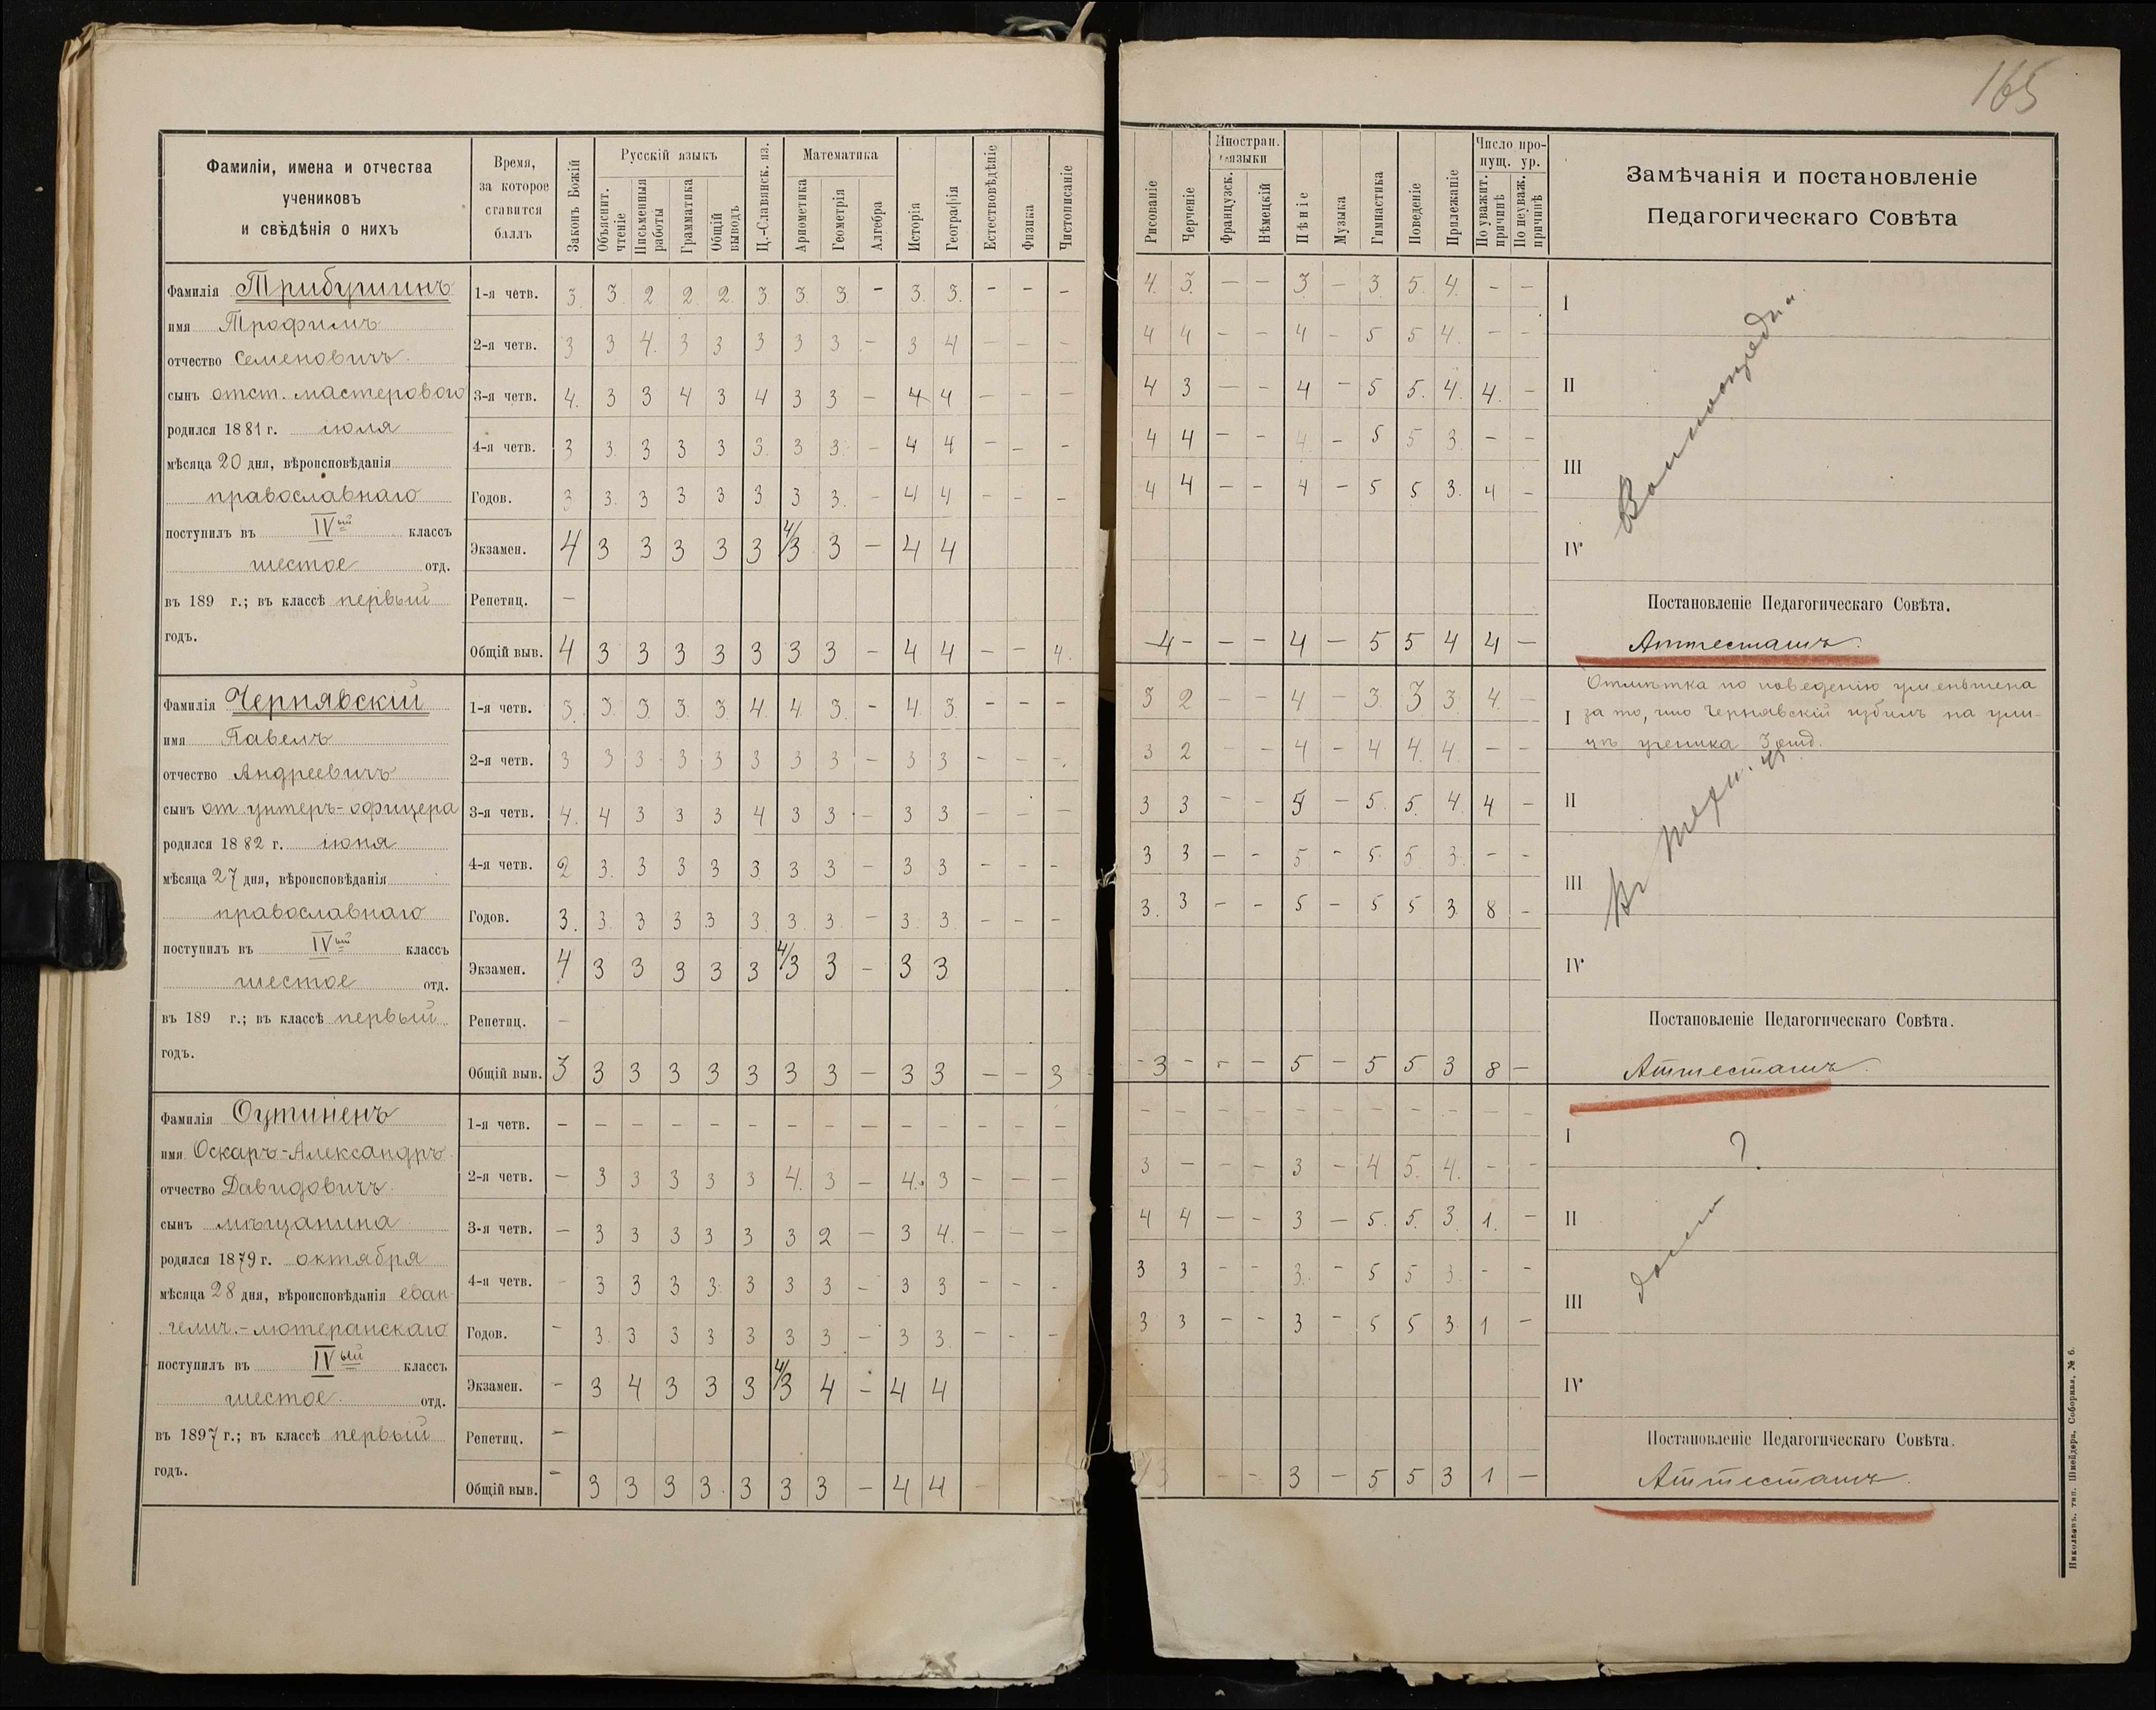 165
Фамиліи, имена и отчества
учениковъ
и свѣдѣнія о нихъ
Время,
за которое
ставится
баллъ
Законъ Божій
Русскій языкъ
Объяснит. чтеніе
Письменныя работы
Грамматика
Общій выводъ
Ц.-Славянск. яз.
Математика
Арѳметика
Геометрія
Алгебра
Исторія
Географія
Естествовѣдѣніе
Физика
Чистописаніе
Рисованіе
Черченіе
Иностран. языки
Французск.
Нѣмецкій
Пѣніе
Музыка
Гимнастика
Поведеніе
Прилежаніе
Число пропущ. ур.
По уважит. причинѣ
По неуваж. причинѣ
Замѣчанія и постановленіе
Педагогическаго Совѣта
Фамилія Трибушинъ
имя Трофимъ
отчество Семеновичъ.
сынъ отст. мастерового
родился 1881 г. іюля
мѣсяца 20 дня, вѣроисповѣданія
православнаго
поступилъ въ IVый классъ
шестое отд.
въ 189 г.; въ классѣ первый
годъ.
1-я четв. 3. 3. 2 2. 2. 3. 3. 3. - 3. 3. - - - 4. 3. - - 3 - 3. 5. 4. - -
2-я четв. 3 3 4. 3 3 3 3 3 - 3 4 - - - 4 4 - - 4 - 5 5 4. - -
3-я четв. 4. 3 3 4 3 4 3 3 - 4 4 - - - 4 3 - - 4 - 5 5. 4. 4. -
4-я четв. 3 3. 3 3 3 3. 3 3. - 4 4 - - - 4 4 - - 4. - 5 5 3 - -
Годов. 3 3. 3 3 3 3 3 3. - 4 4 - - - 4 4 - - 4 - 5 5 3. 4 -
Экзамен. 4 3 3 3 3 3 4/3 3 - 4 4
Репетиц. -
Общій выв. 4 3 3 3 3 3 3 3 - 4 4 - - 4. -4- - - 4 - 5 5 4 4 -
I
II
III
IV
Постановленіе Педагогическаго Совѣта.
Аттестатъ.
Фамилія Чернявскій
имя Павелъ
отчество Андреевичъ
сынъ от. унтеръ-офицера
родился 1882 г. іюня
мѣсяца 27 дня, вѣроисповѣданія
православнаго
поступилъ въ IVый классъ
шестое отд.
въ 189 г.; въ классѣ первый
годъ.
1-я четв. 3. 3. 3. 3. 3 4. 4. 3. - 4. 3. - - - 3 2 - - 4 - 3. 3 3. 4. -
2-я четв. 3 3 3 3 3 3 3 3 - 3 3 - - - 3 2 - - 4 - 4 4. 4 - -
3-я четв. 4. 4 3 3 3 4 3 3 - 3 3 - - - 3 3 - - 5 - 5. 5. 4. 4 -
4-я четв. 2 3. 3 3 3 3 3 3 - 3 3 - - - 3 3 - - 5 - 5 5 3. - -
Годов. 3. 3. 3 3 3 3. 3. 3. - 3. 3. - - - 3. 3 - - 5 - 5 5 3. 8 -
Экзамен. 4 3 3 3 3 3 4/3 3 - 3 3
Репетиц. -
Общій выв. 3 3 3 3 3 3 3 3 - 3 3 - - 3 -3- - - 5 - 5 5 3 8 -
Отмѣтка по поведенію уменьшена
I за то, что Чернявскій избилъ на ули-
цѣ ученика 3 отд.
II
III
IV
Постановленіе Педагогическаго Совѣта.
Аттестатъ.
Фамилія Оутиненъ
имя Оскаръ-Александръ
отчество Давидовичъ
сынъ мѣщанина
родился 1879 г. октября
мѣсяца 28 дня, вѣроисповѣданія еван-
гелич.-лютеранскаго
поступилъ въ IVый классъ
шестое отд.
въ 1897 г.; въ классѣ первый
годъ.
1-я четв. - - - - - - - - - - - - - - - - - - - - - - - - -
2-я четв. - 3 3 3 3 3 4. 3 - 4. 3 - - - 3 - - - 3 - 4 5. 4. - -
3-я четв. - 3 3 3 3 3 3 2 - 3 4. - - - 4 4 - - 3 - 5. 5. 3. 1. -
4-я четв. - 3 3 3 3. 3 3 3 - 3 3 - - - 3 3 - - 3. - 5 5 3 - -
Годов. - 3. 3 3 3 3 3 3 - 3 3 - - - 3 3 - - 3 - 5 5 3. 1 -
Экзамен. - 3 4 3 3 3 4/3 4 - 4 4
Репетиц. -
Общій выв. - 3 3 3 3. 3 3 3 - 4 4 - - - 3 - 5 5 3 1 -
I
?
II
III
IV
Постановленіе Педагогическаго Совѣта.
Аттестатъ.
Николаевъ. тип. Шнейдера, Соборная, № 6